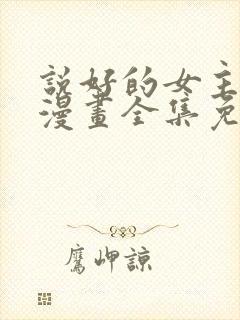 說好的女主
漫畫全集免
鷹岬諒